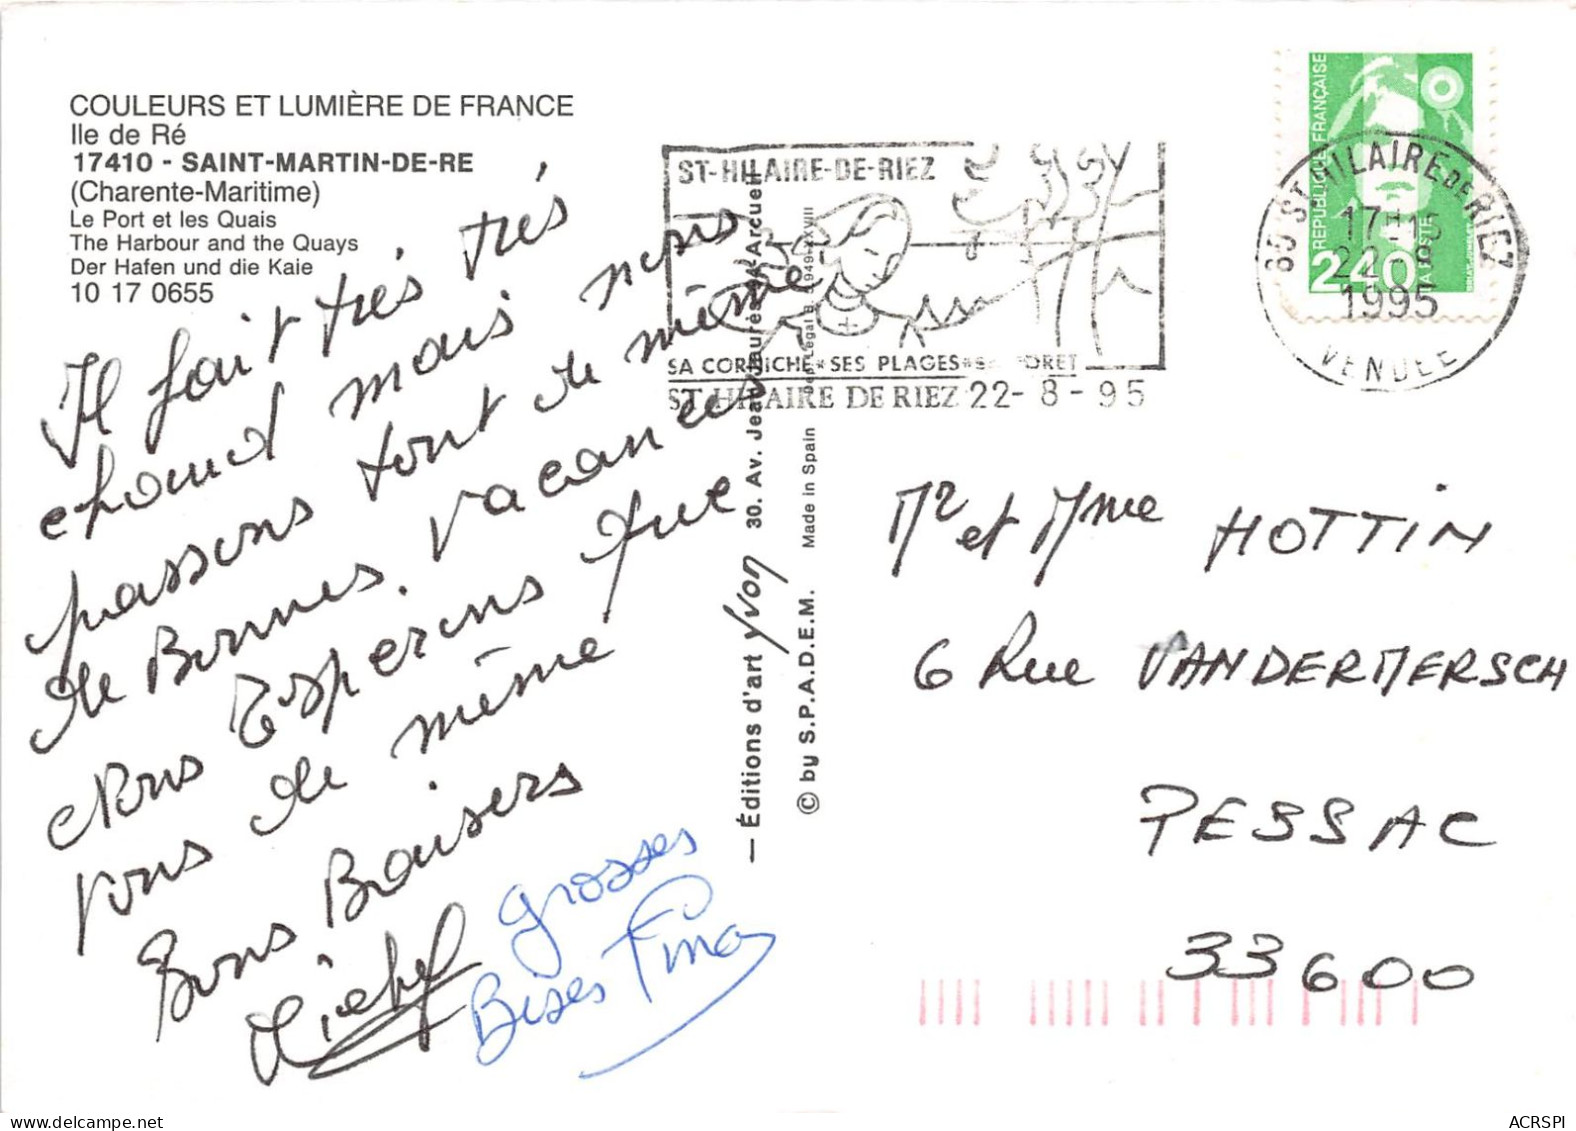 COULEURS ET LUMIÈRE DE FRANCE
Ile de Ré
17410 - SAINT-MARTIN-DE-RE
(Charente-Maritime)
Le Port et les Quais
The Harbour and the Quays
Der Hafen und die Kaie
10 17 0655
Il fait très très
chaud mais nous
passons tout de même
de Bonnes. Vacances
Nous Esperons que
vous de même
Bons Baisers
Michel
grosses
Bises Tina
— Éditions d'art Yvon 30. Av. Jean Jaurès 94 Arcueil
© by S.P.A.D.E.M. Made in Spain Dep. Légal B.
ST-HILAIRE-DE-RIEZ
SA CORNICHE * SES PLAGES * SA FORET
ST HILAIRE DE RIEZ 22-8-95
RÉPUBLIQUE FRANÇAISE
2,40 LA POSTE
85 ST HILAIRE DE RIEZ
17-H15
22-8
1995
VENDEE
Mr et Mme HOTTIN
6 Rue VANDERMERSCH
PESSAC
33600
ACRSPI